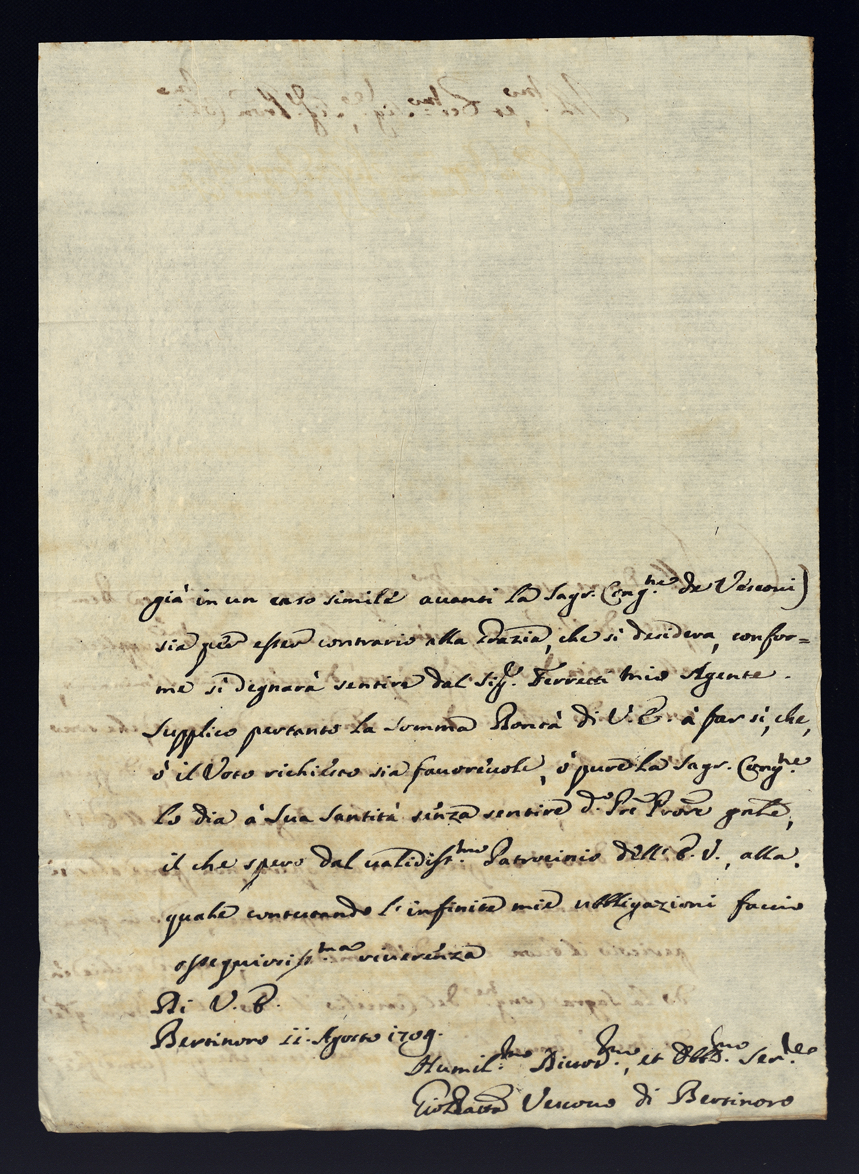 già in un caso simile avanti la Sagr. Cong.ne de Vescovi)
sia per esser contrario alla Grazia, che si desidera, confor=
me si degnarà sentire dal Sig.r Ferretti mio Agente.
Supplico pertanto la somma Bontà di V. E. à far sì, che,
ò il Voto richiesto sia favorevole, ò pure la Sagr. Cong.ne
lo dia à Sua Santità senza sentire d.o Pre Prore gnle,
il che spero dal validiss.mo Patrocinio dell' E. V., alla
quale contestando l' infinite mie obbligazioni faccio
ossequiosiss.ma riverenza
Di V. E.
Bertinoro 11. Agosto 1709.
Humil.mo Divot.mo, et Obb.mo Ser.re
Gio: Vescovo di Bertinoro